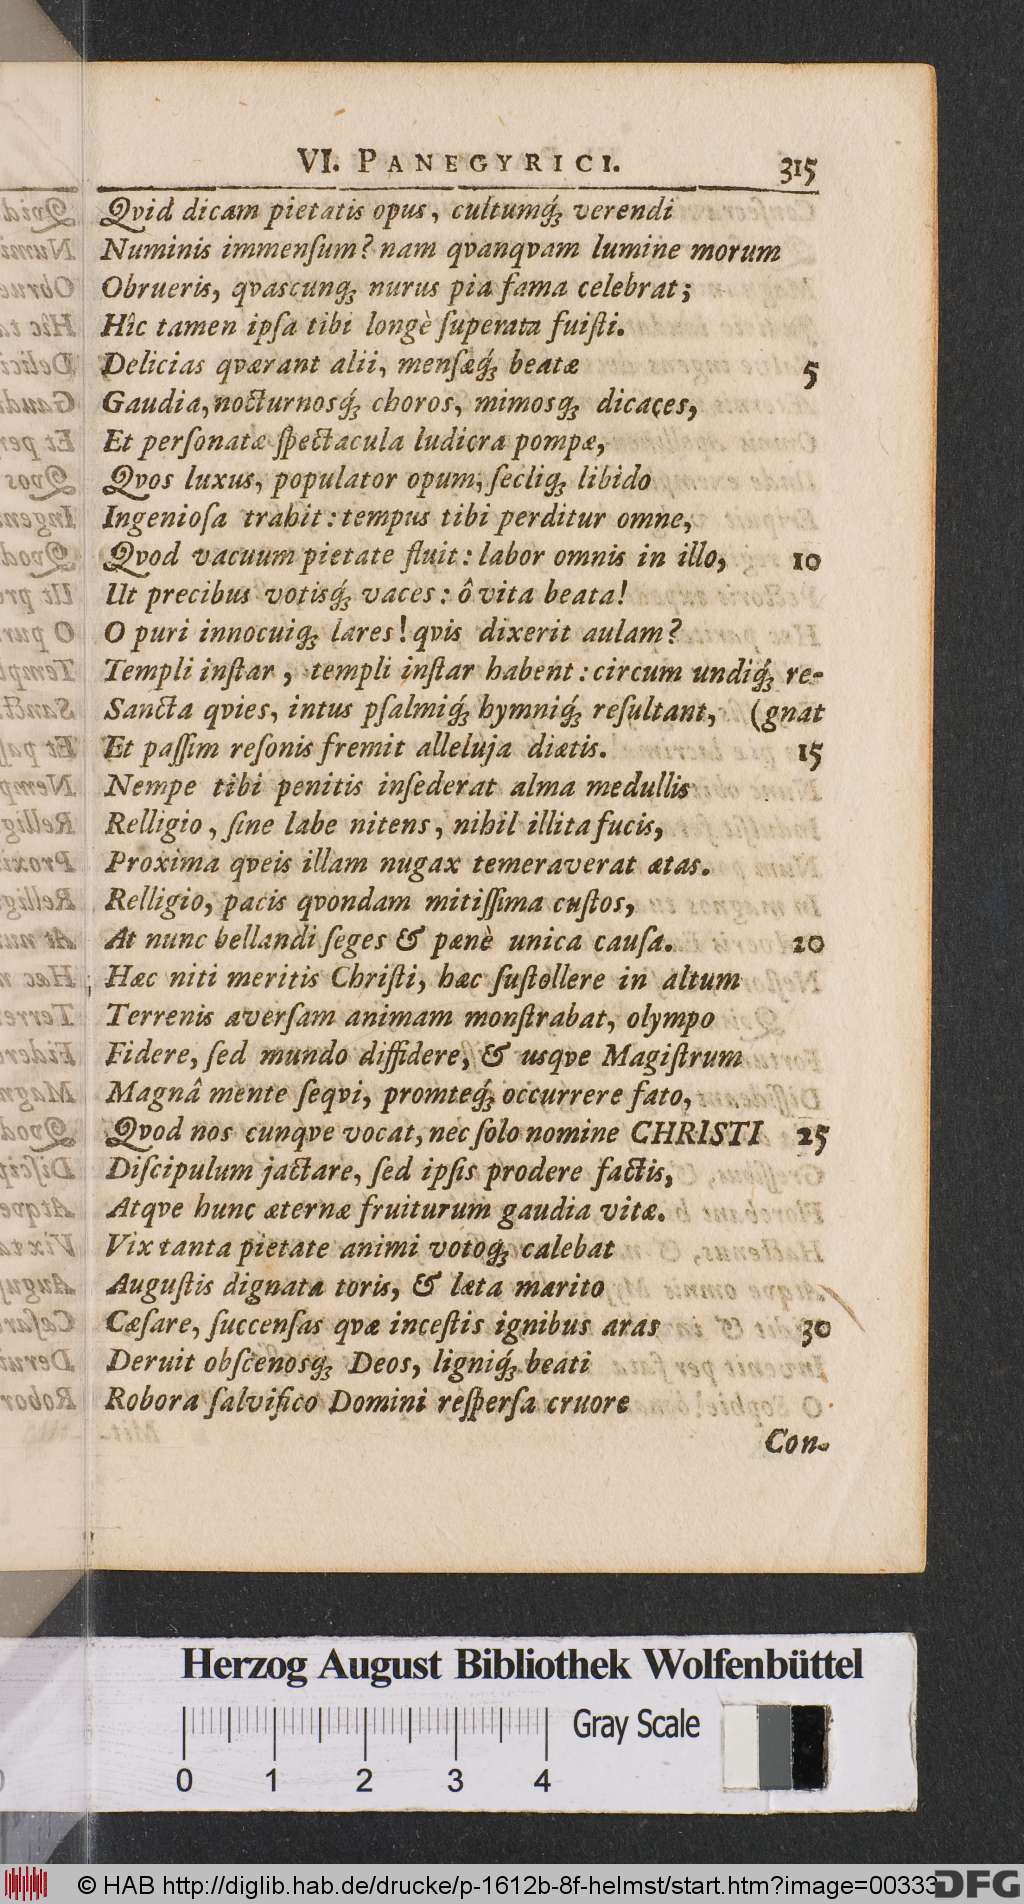 VI. PANEGYRICI. 315
Qvid dicam pietatis opus, cultumq́ꝫ verendi
Numinis immenſum? nam qvanqvam lumine morum
Obrueris, qvascunqꝫ nurus pia fama celebrat;
Hîc tamen ipſa tibi longè ſuperata fuiſti.
Delicias qværant alii, menſæq́ꝫ beatæ 5
Gaudia, nocturnosq́ꝫ choros, mimosqꝫ dicaces,
Et perſonatæ ſpectacula ludicra pompæ,
Qvos luxus, populator opum, ſecliqꝫ libido
Ingenioſa trahit: tempus tibi perditur omne,
Qvod vacuum pietate fluit: labor omnis in illo, 10
Ut precibus votisq́ꝫ vaces: ô vita beata!
O puri innocuiqꝫ lares! qvis dixerit aulam?
Templi inſtar, templi inſtar habent: circum undiq́ꝫ re-
Sancta qvies, intus pſalmiq́ꝫ hymniq́ꝫ reſultant, (gnat
Et paſſim reſonis fremit alleluja diætis. 15
Nempe tibi penitis inſederat alma medullis
Relligio, ſine labe nitens, nihil illita fucis,
Proxima qveis illam nugax temeraverat ætas.
Relligio, pacis qvondam mitiſſima cuſtos,
At nunc bellandi ſeges & pænè unica cauſa. 20
Hæc niti meritis Chriſti, hæc ſuſtollere in altum
Terrenis averſam animam monſtrabat, olympo
Fidere, ſed mundo diffidere, & usqve Magiſtrum
Magnâ mente ſeqvi, promteq́ꝫ occurrere fato,
Qvod nos cunqve vocat, nec ſolo nomine CHRISTI 25
Diſcipulum jactare, ſed ipſis prodere factis,
Atqve hunc æternæ fruiturum gaudia vitæ.
Vix tanta pietate animi votoqꝫ calebat
Auguſtis dignata toris, & læta marito
Cæſare, ſuccenſas qvæ inceſtis ignibus aras 30
Deruit obſcenosqꝫ Deos, ligniq́ꝫ beati
Robora ſalvifico Domini reſperſa cruore
Con-
Herzog August Bibliothek Wolfenbüttel
Gray Scale
0 1 2 3 4
© HAB http://diglib.hab.de/drucke/p-1612b-8f-helmst/start.htm?image=00333
DFG